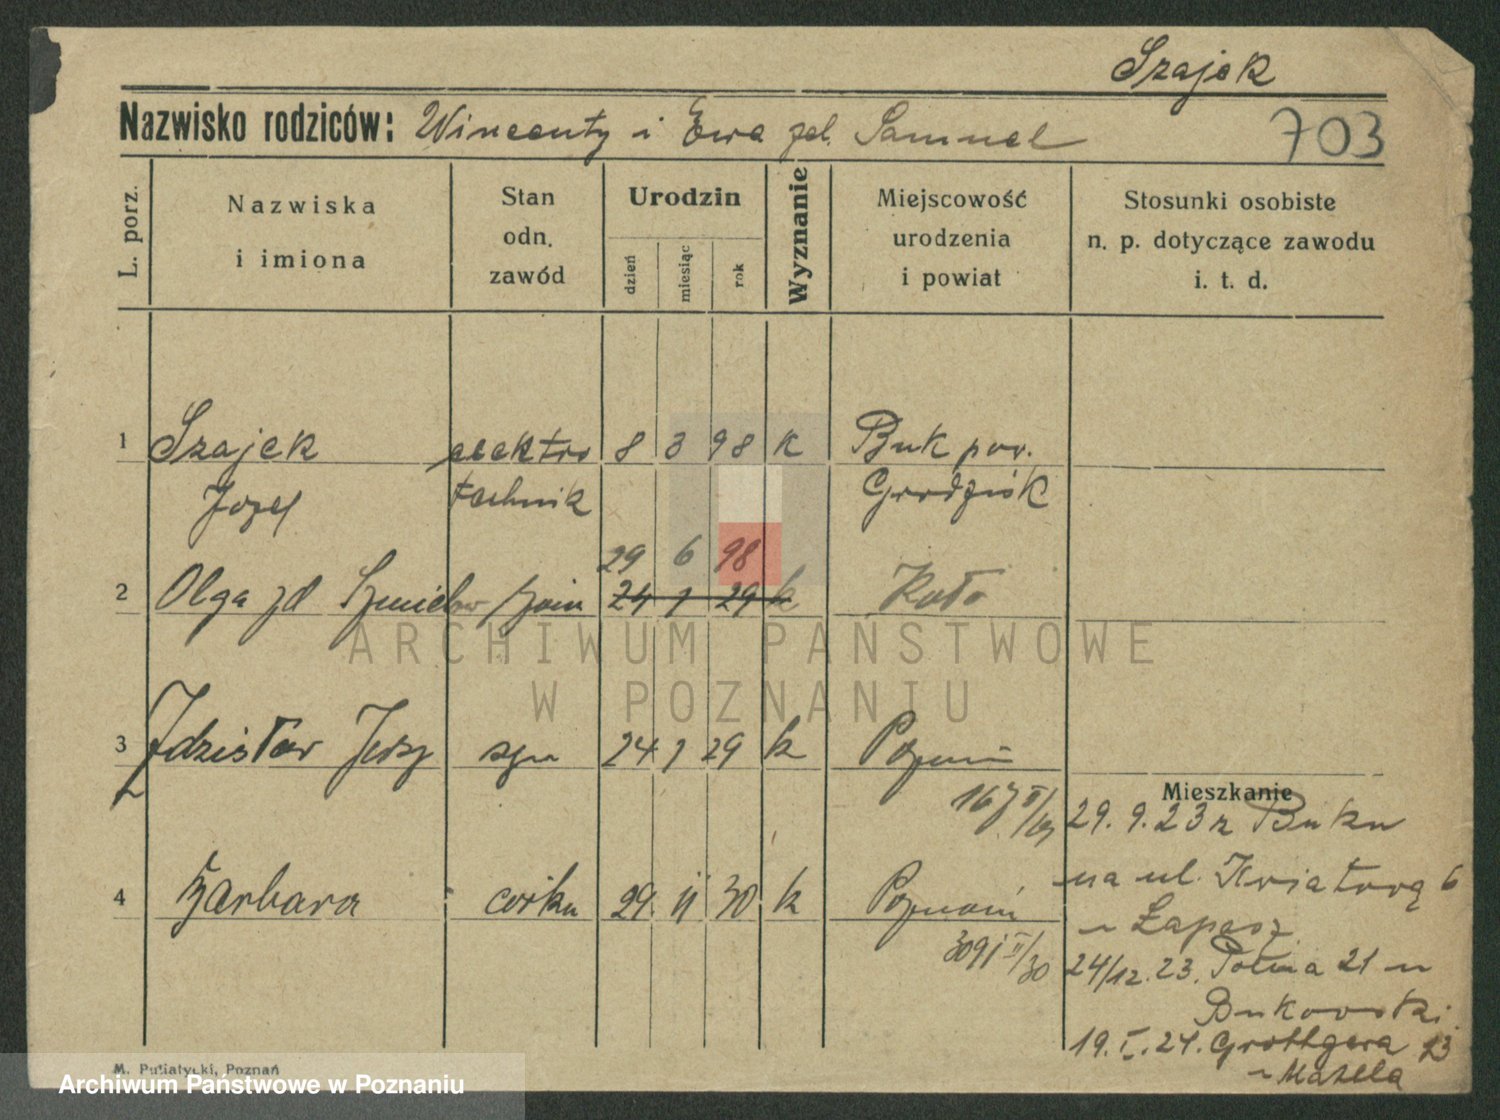 Szajek
Nazwisko rodziców: Wincenty i Ewa zd. Samuel 703
L. porz.
Nazwiska
i imiona
Stan
odn.
zawód
Urodzin
dzień
miesiąc
rok
Wyznanie
Miejscowość
urodzenia
i powiat
Stosunki osobiste
n. p. dotyczące zawodu
i. t. d.
1 Szajek elektro 8 3 98 k Buk pow.
Józef technik Grodzisk
29 6 98
2 Olga zd żona 24 1 29 k Koło
3 Zdzisław Jerzy syn 24 1 29 k Poznań
Mieszkanie
29. 9. 23 z Buku
4 Barbara córka 29. 11 30 k Poznań
na ul. Kwiatową 6
u Łapesz
3091 II/30
24/12. 23. Polna 21 u
Bukowski
19. I. 24. Grottgera 13
u Matella
M. Putiatycki, Poznań
ARCHIWUM PAŃSTWOWE
W POZNANIU
Archiwum Państwowe w Poznaniu